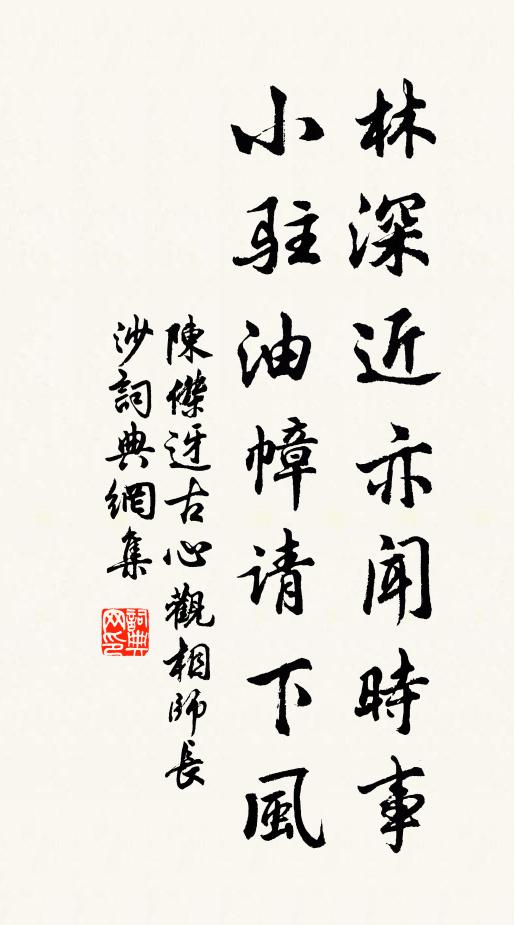 林深近亦闻時事
小驻油幛请下風
陳傑迓古心觀相師長
沙詞典網集
詞典网印